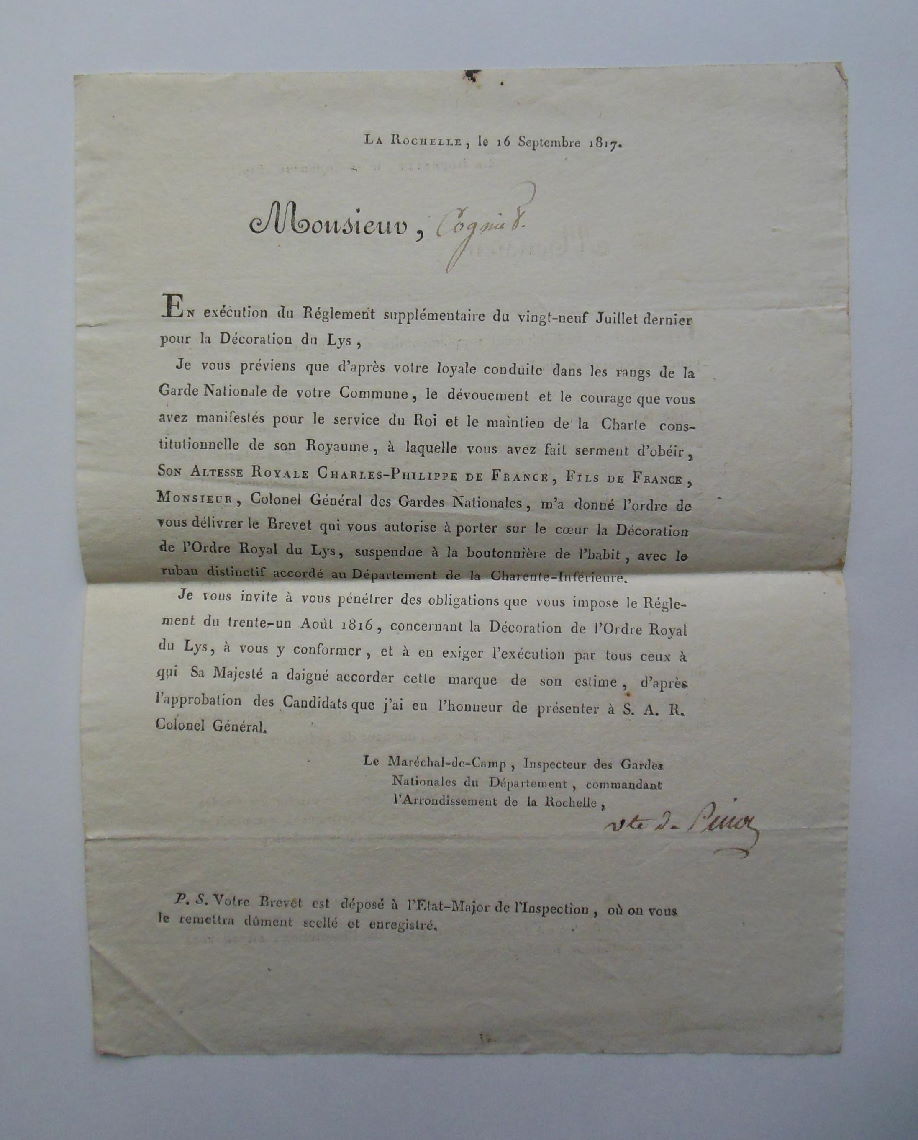 LA ROCHELLE, le 16 Septembre 1817.
Monsieur,
EN exécution du Réglement supplémentaire du vingt-neuf Juillet dernier
pour la Décoration du Lys,
Je vous préviens que d'après votre loyale conduite dans les rangs de la
Garde Nationale de votre Commune, le dévouement et le courage que vous
avez manifestés pour le service du Roi et le maintien de la Charte cons-
titutionnelle de son Royaume, à laquelle vous avez fait serment d'obéir,
SON ALTESSE ROYALE CHARLES-PHILIPPE DE FRANCE, FILS DE FRANCE,
MONSIEUR, Colonel Général des Gardes Nationales, m'a donné l'ordre de
vous délivrer le Brevet qui vous autorise à porter sur le cœur la Décoration
de l'Ordre Royal du Lys, suspendue à la boutonnière de l'habit, avec le
ruban distinctif accordé au Département de la Charente-Inférieure.
Je vous invite à vous pénétrer des obligations que vous impose le Régle-
ment du trente-un Août 1816, concernant la Décoration de l'Ordre Royal
du Lys, à vous y conformer, et à en exiger l'exécution par tous ceux à
qui Sa Majesté a daigné accorder cette marque de son estime, d'après
l'approbation des Candidats que j'ai eu l'honneur de présenter à S. A. R.
Colonel Général.
Le Maréchal-de-Camp, Inspecteur des Gardes
Nationales du Département, commandant
l'Arrondissement de la Rochelle,
vte de
P. S. Votre Brevet est déposé à l'Etat-Major de l'Inspection, où on vous
le remettra dûment scellé et enregistré.